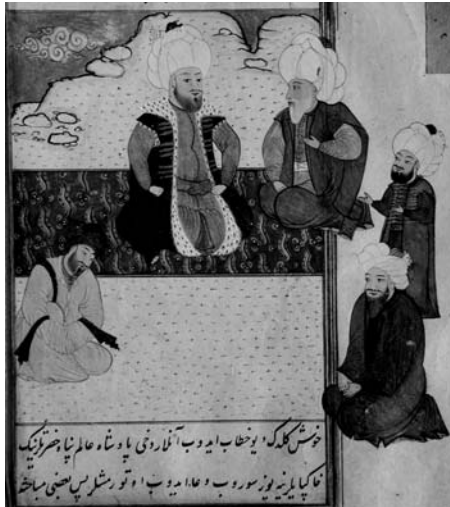 خوش کلدک دیو خطاب ایدوب آنلار دخی پادشاه عالم پناه حضرتلرینک
خاکپایلرینه یوز سوروب و دعا ایدوب اوتورمشلر پس بعضی مباحثه